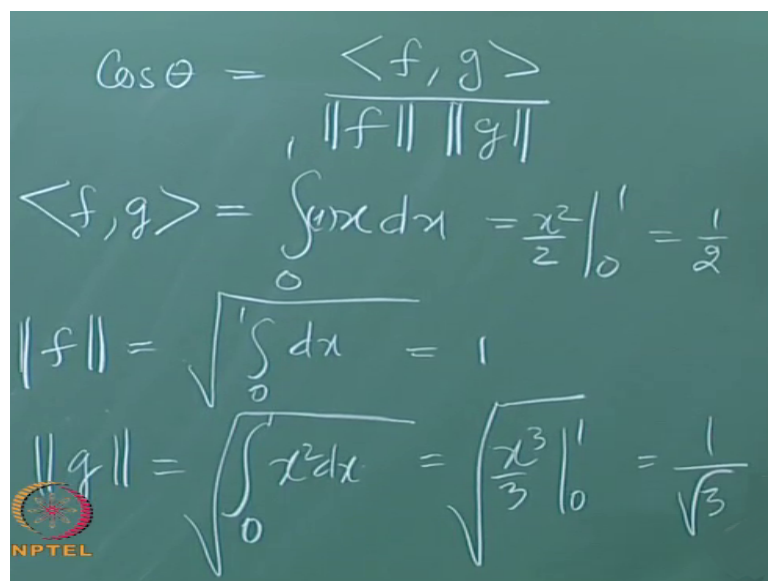 Cos θ = <f, g> / ||f|| ||g||
<f, g> = ∫₀¹ (1)x dx = x²/2 |₀¹ = 1/2
||f|| = √(∫₀¹ dx) = 1
||g|| = √(∫₀¹ x² dx) = √(x³/3 |₀¹) = 1/√3
NPTEL